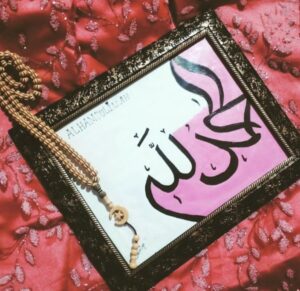 ALHAMDULILLAH
الحمد لله